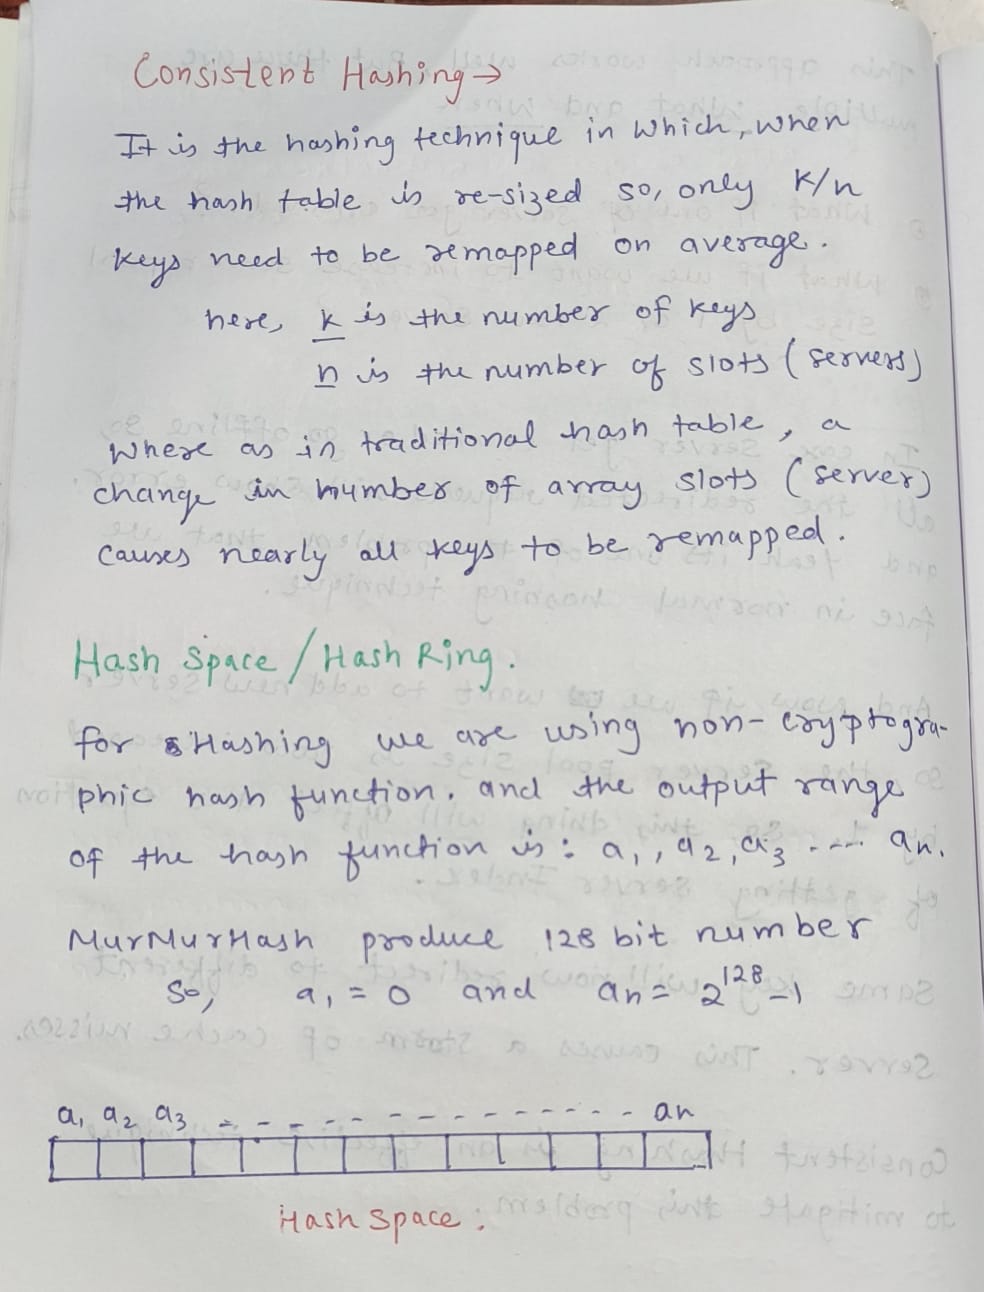 Consistent Hashing →
It is the hashing technique in which, when
the hash table is re-sized so, only K/n
keys need to be remapped on average.
here, k is the number of keys
n is the number of slots (servers)
Where as in traditional hash table, a
change in number of array slots (server)
causes nearly all keys to be remapped.
Hash Space / Hash Ring.
for Hashing we are using non-cryptogra-
phic hash function. and the output range
of the hash function is: a₁, a₂, a₃ ---- aₙ.
MurMurHash produce 128 bit number
So, a₁ = 0 and aₙ = 2¹²⁸-1
a₁ a₂ a₃ - - - - - - - - - - - - - - aₙ
Hash Space.